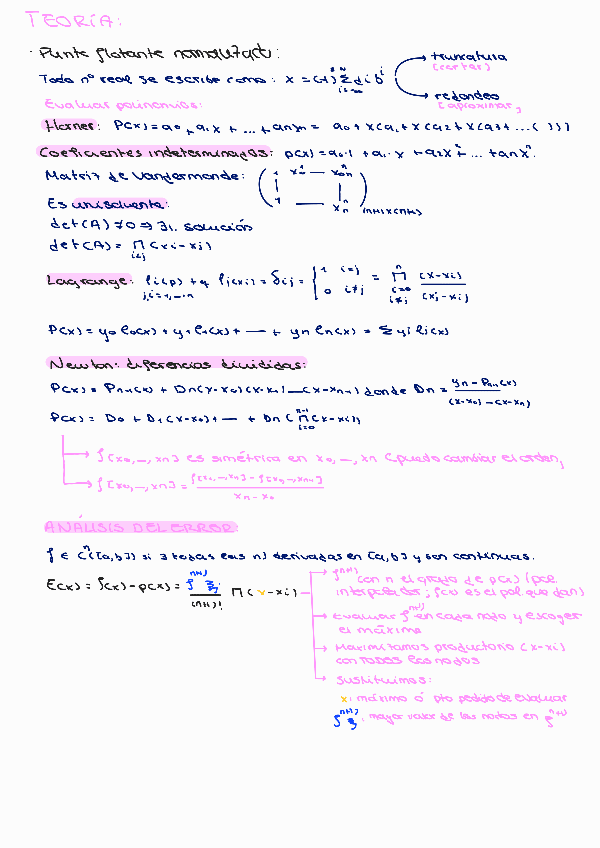 TEORÍA:
· Punto flotante normalizado:
Todo nº real se escribe como: x = (-1)^s Σ di b^i
truncatura
(cortar)
redondeo
(aproximar)
Evaluar polinomios:
Horner: P(x) = a0 + a1x + ... + anxn = a0 + x(a1 + x(a2 + x(a3 + ...( )))
Coeficientes indeterminados: p(x) = a0·1 + a1·x + a2x² + ... + anxⁿ.
Matriz de Vandermonde:
Es unisolvente:
det(A) ≠ 0 ⇒ ∃! solución
det(A) = Π i<j (xi - xj)
Lagrange: li(p) tq lj(xi) = δij = { 1 i=j 0 i≠j = Π (x - xi) / (xj - xi)
j,i = 1, ..., n
P(x) = y0 l0(x) + y1 l1(x) + — + yn ln(x) = Σ yi li(x)
Newton: diferencias divididas:
P(x) = Pn-1(x) + Dn(x-x0)(x-x1)...(x-xn-1) donde Dn = yn - Pn-1(x) / (x-x0)...(x-xn)
P(x) = D0 + D1(x-x0) + — + Dn (Π (x-xi))
f[x0, —, xn] es simétrica en x0, —, xn (puedo cambiar el orden)
f[x0, —, xn] = f[x1, —, xn] - f[x0, —, xn-1] / xn - x0
ANÁLISIS DEL ERROR:
f ∈ Cⁿ([a,b]) si ∃ todas las n) derivadas en [a,b] y son continuas.
E(x) = f(x) - p(x) = f^(n+1) ξ / (n+1)! Π(x - xi)
f^(n+1) con n el grado de p(x) (pol.
interpolador; f(x) es el pol. que dan)
Evaluar f^(n+1) en cada nodo y escoger
el máximo
Maximizamos productorio (x-xi)
con TODOS los nodos
Sustituimos:
x: máximo ó pto pedido de evaluar
f^(n+1) ξ: mayor valor de los nodos en f^(n+1)